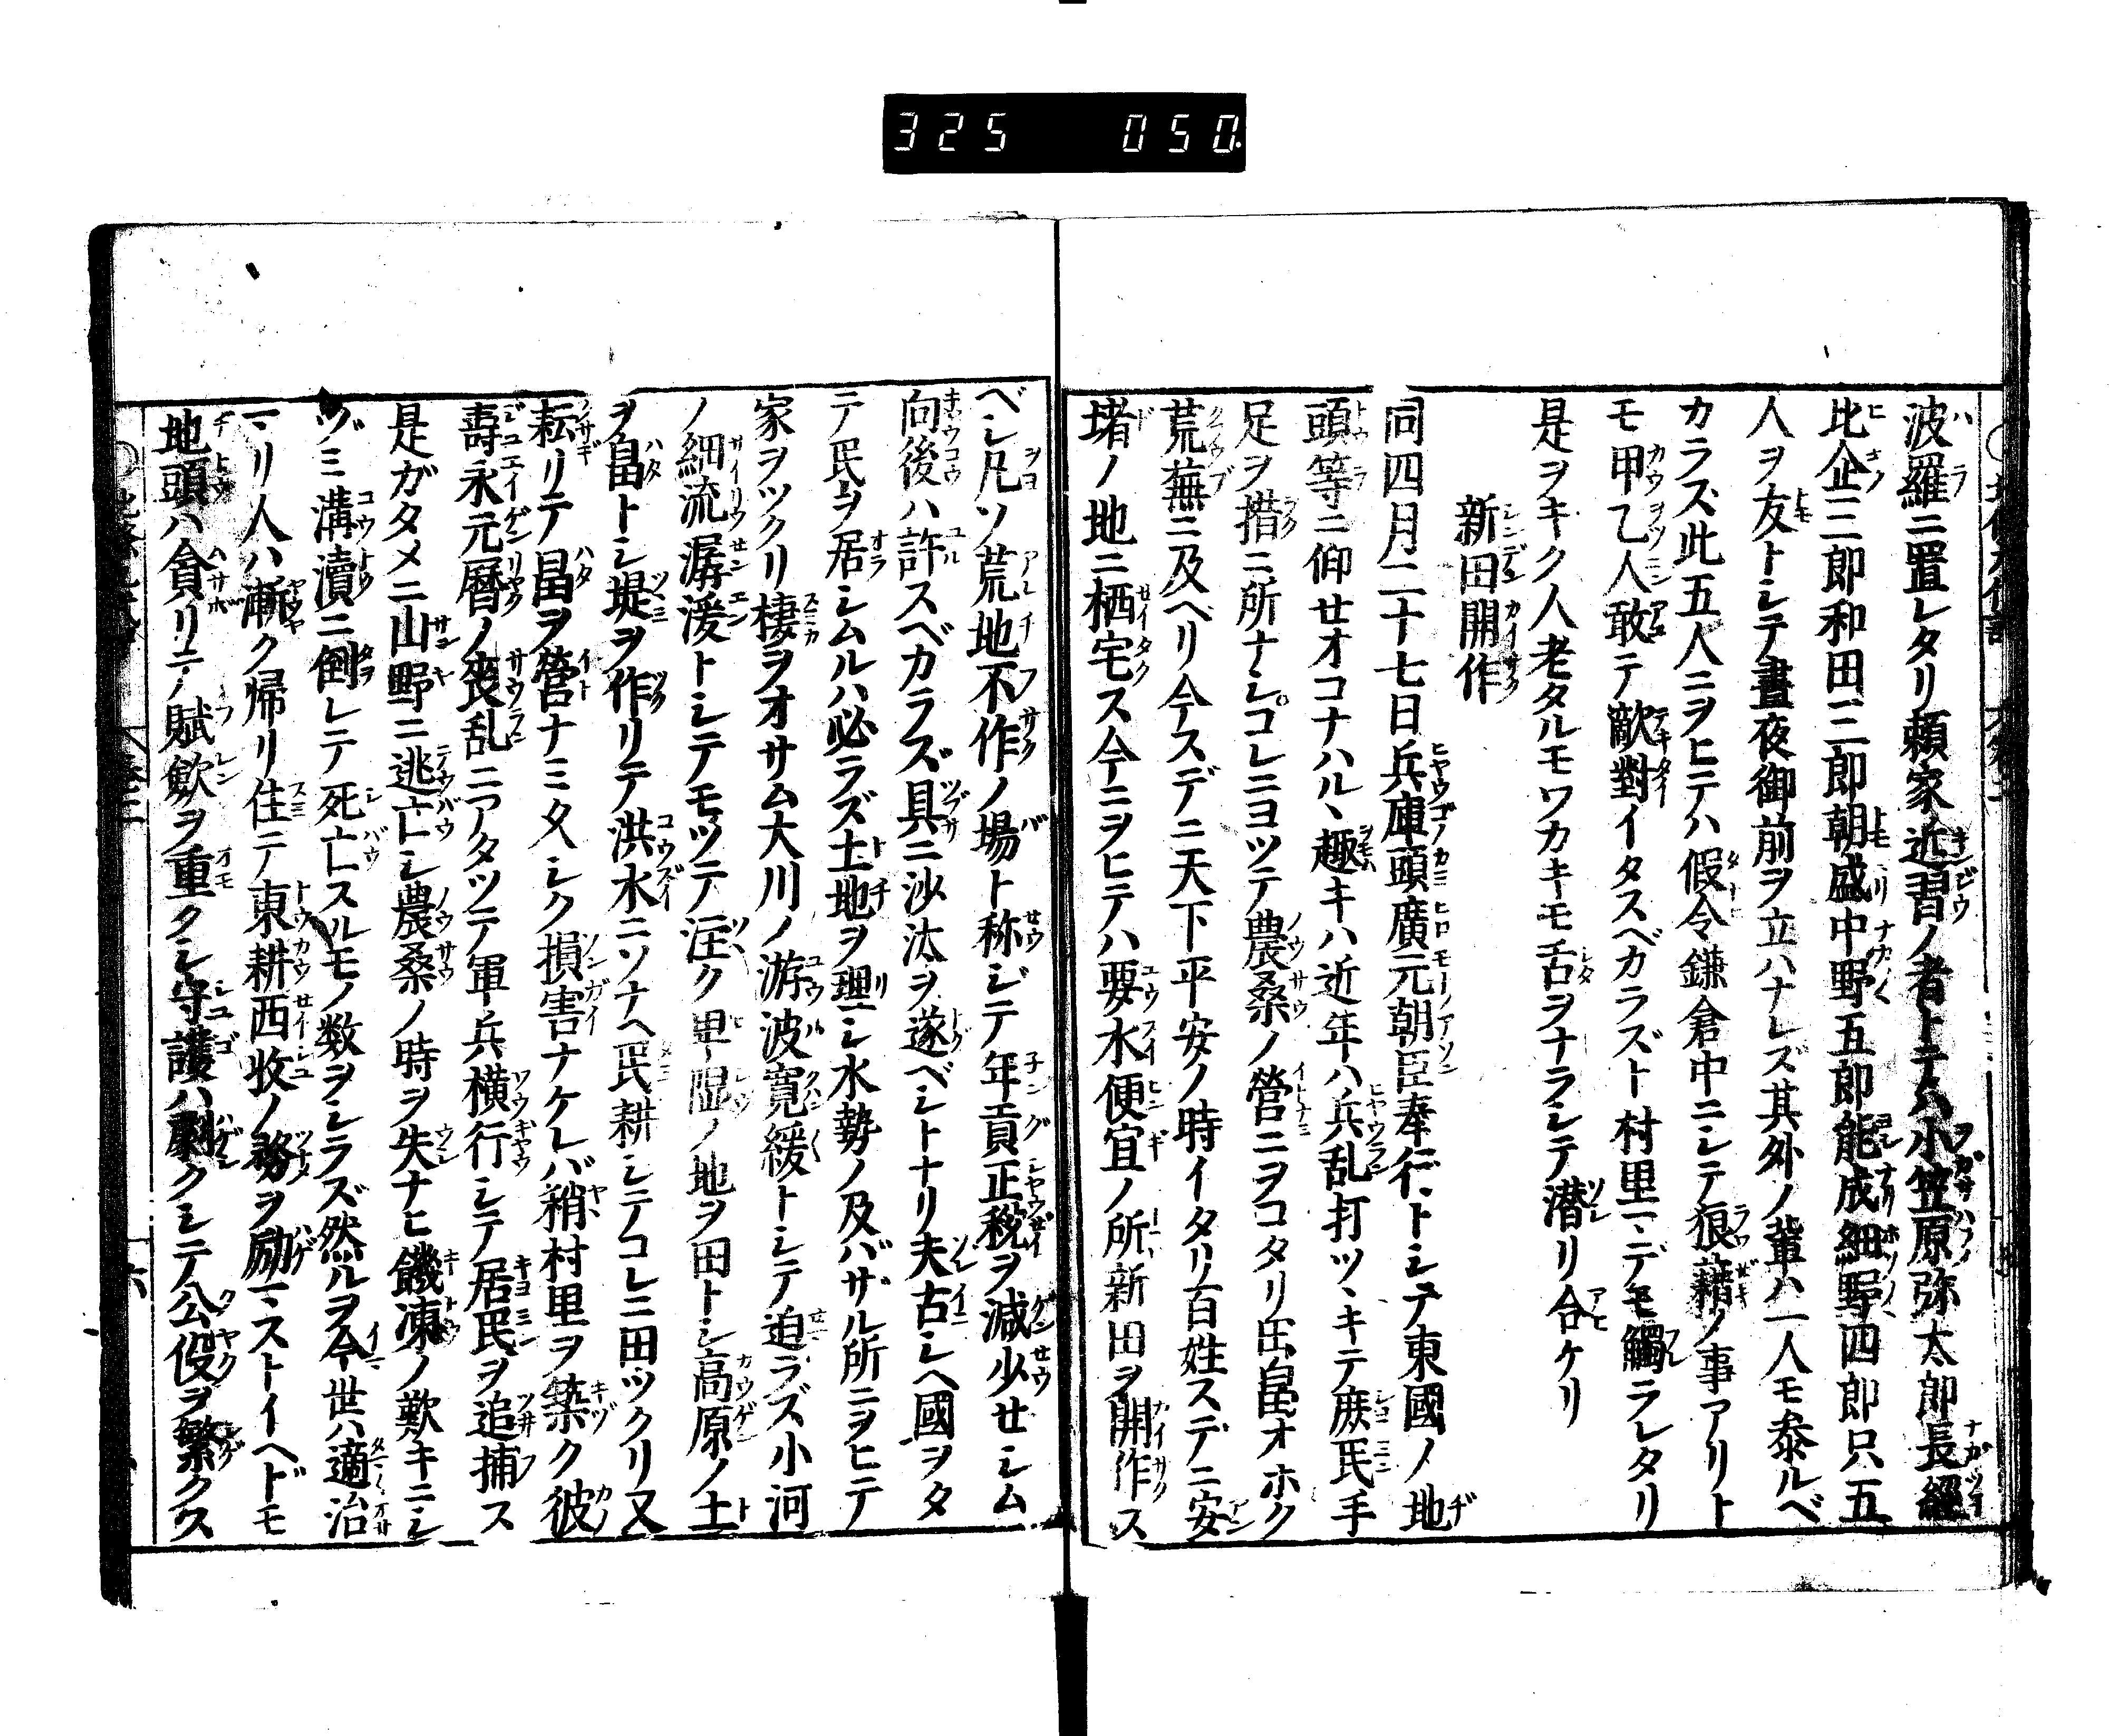 325 050.
波羅ニ置レタリ頼家近習ノ者トテハ小笠原弥太郎長經
比企三郎和田三郎朝盛中野五郎能成細野四郎只五
人ヲ友トシテ晝夜御前ヲ立ハナレズ其外ノ輩ハ一人モ参ルベ
カラズ此五人ニヲヒテハ假令鎌倉中ニシテ狼藉ノ事アリト
モ甲乙人敢テ敵對イタスベカラズト村里マデモ觸ラレタリ
是ヲキク人老タルモワカキモ舌ヲナラシテ潜リ合ケリ
新田開作
同四月二十七日兵庫頭廣元朝臣奉行トシテ東國ノ地
頭等ニ仰セオコナハルヽ趣キハ近年ハ兵乱打ツヾキテ庶民手
足ヲ措ニ所ナシ。コレニヨツテ農桑ノ營ニヲコタリ田畠オホク
荒蕪ニ及ベリ今スデニ天下平安ノ時イタリ百姓スデニ安
堵ノ地ニ栖宅ス今ニヲヒテハ要水便宜ノ所新田ヲ開作ス
ベシ凡ソ荒地不作ノ場ト称ジテ年貢正税ヲ減少セシム
向後ハ許スベカラズ具ニ沙汰ヲ遂ベシトナリ夫古シヘ國ヲタ
テ民ヲ居シムルハ必ラズ土地ヲ理シ水勢ノ及バザル所ニヲヒテ
家ヲツクリ棲ヲオサム大川ノ游波寛緩トシテ迫ラズ小河
ノ細流潺湲トシテモツテ注ク卑湿ノ地ヲ田トシ高原ノ土
ヲ畠トシ堤ヲ作リテ洪水ニソナヘ民耕シテコレニ田ツクリ又
耘リテ畠ヲ營ナミ久シク損害ナケレバ稍村里ヲ築ク彼
壽永元暦ノ喪乱ニアタツテ軍兵横行シテ居民ヲ追捕ス
是ガタメニ山野ニ逃亡シ農桑ノ時ヲ失ナヒ饑凍ノ歎キニシ
ヅミ溝瀆ニ倒レテ死亡スルモノ数ヲシラズ然ルヲ今世ハ適治
マリ人ハ漸ク帰リ住テ東耕西收ノ務ヲ励マストイヘドモ
地頭ハ貪リテ賦歛ヲ重クシ守護ハ劇クシテ公役ヲ繁クス